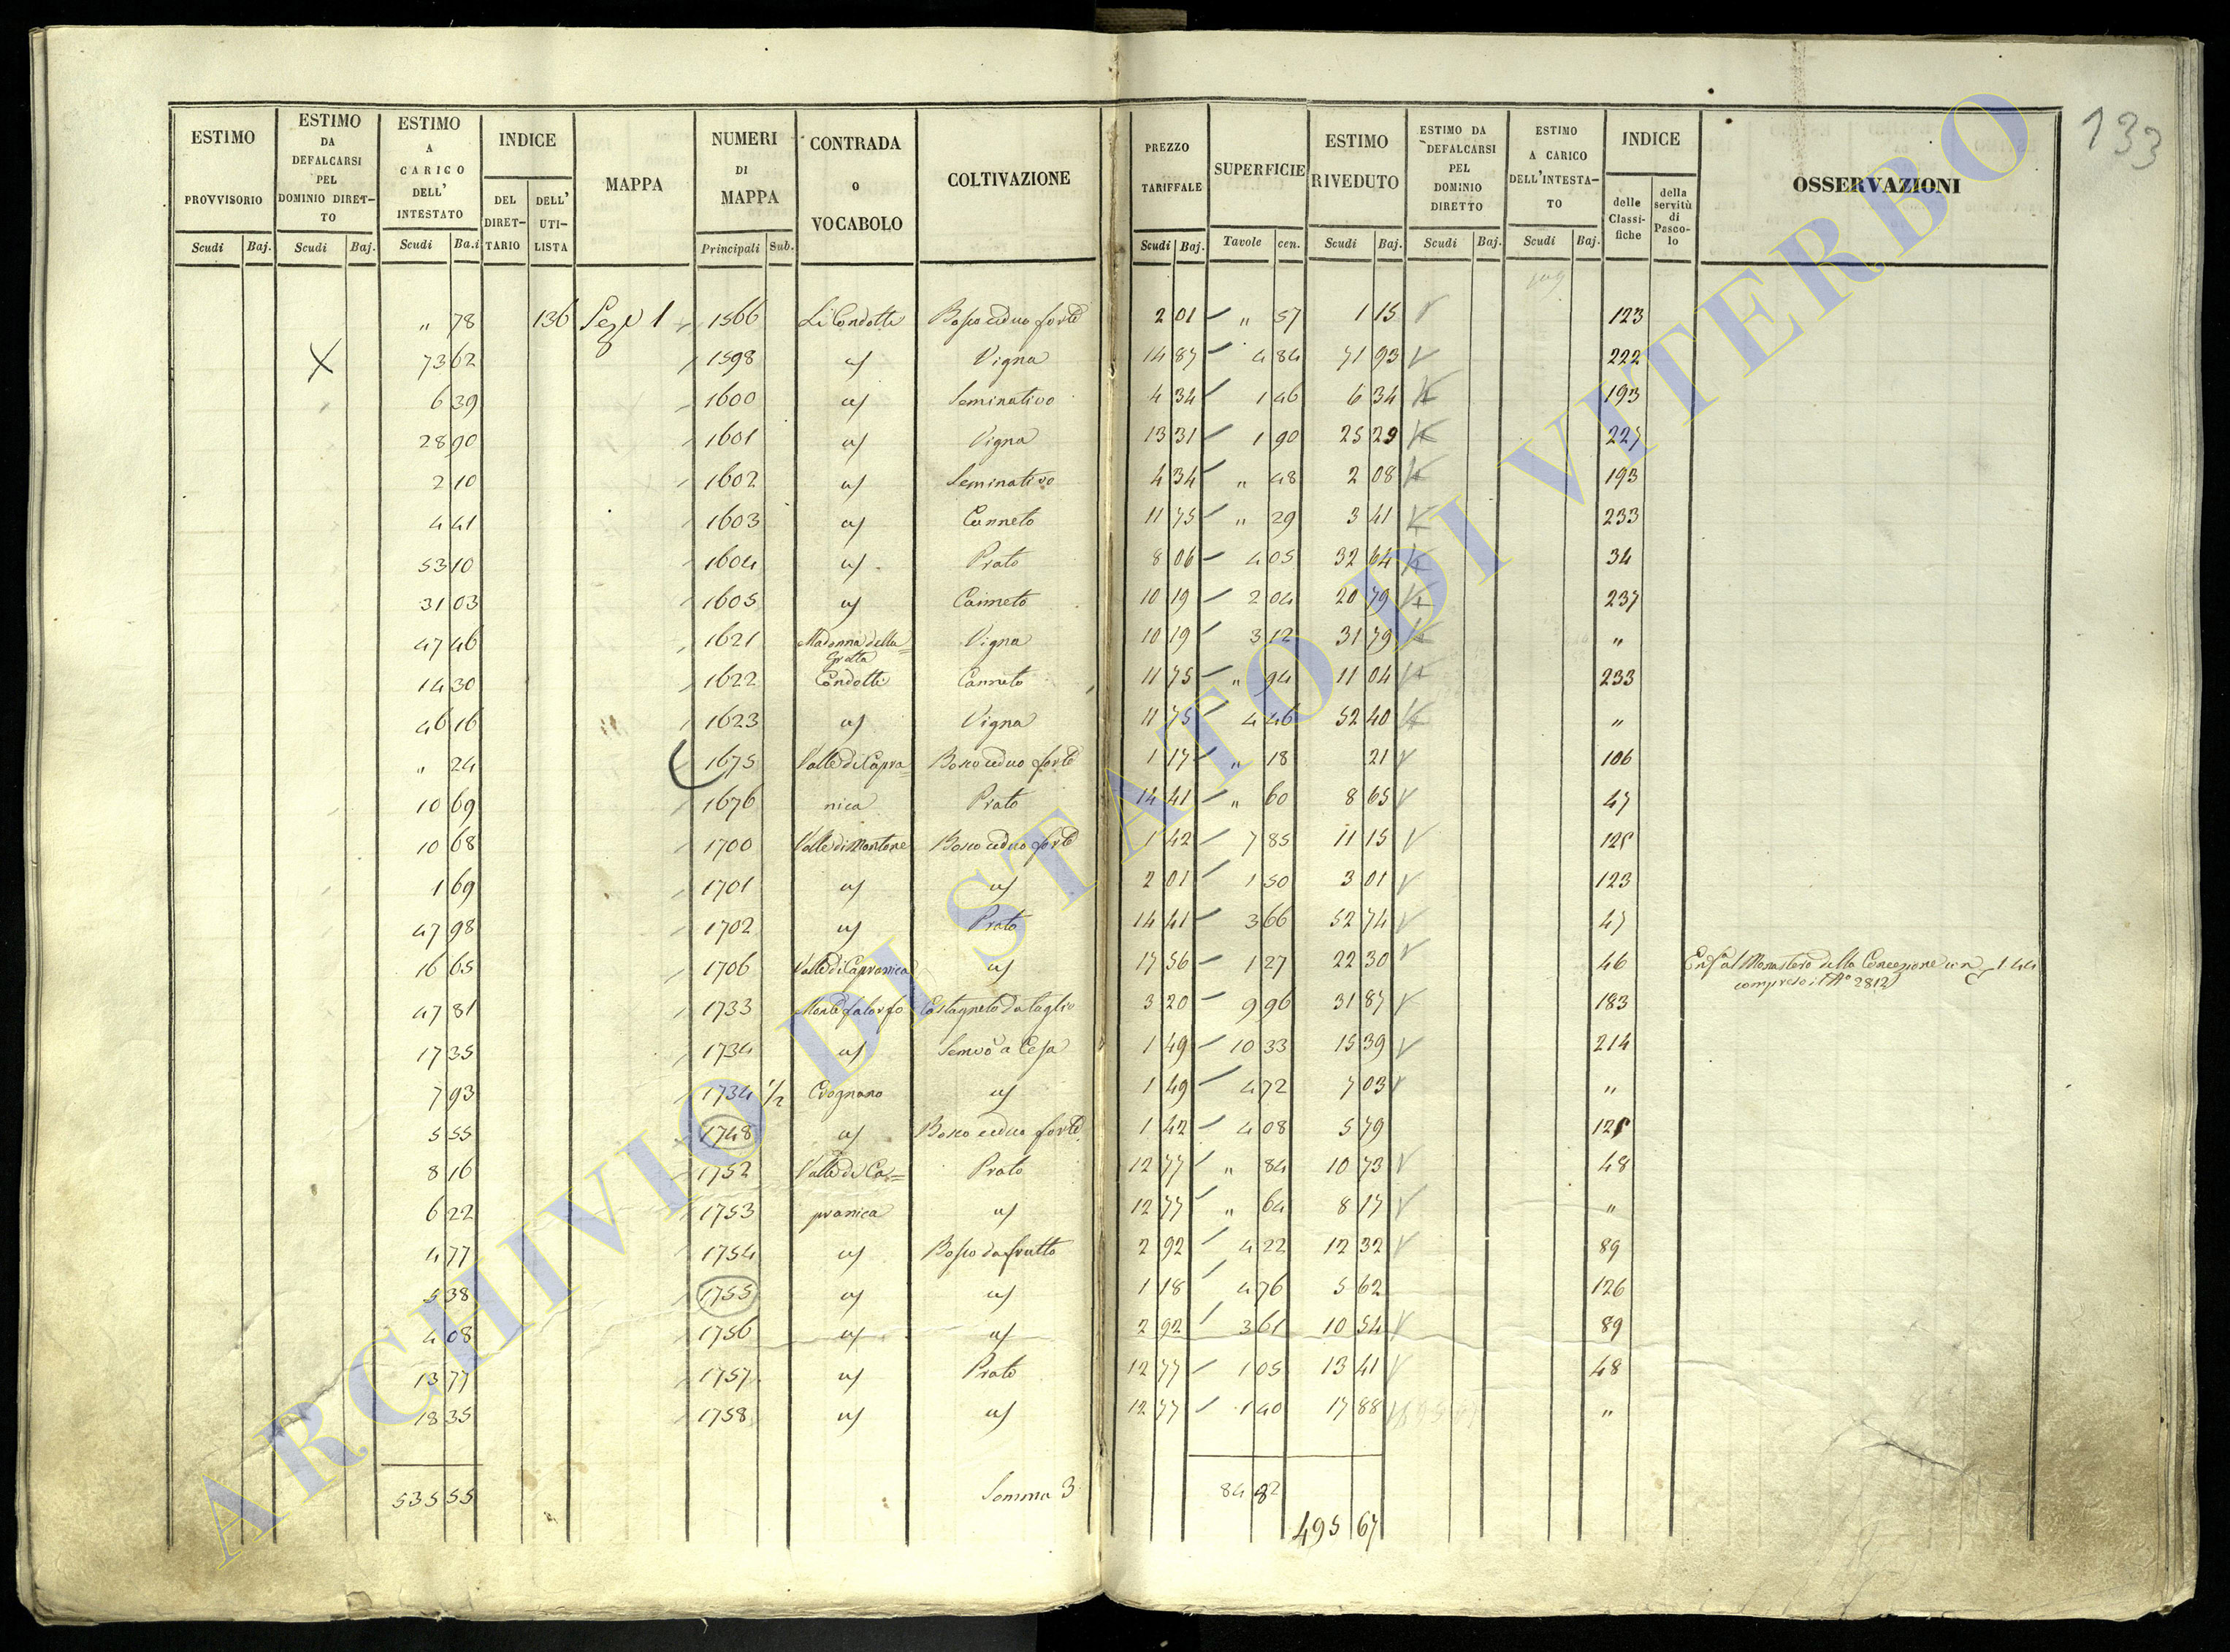 133
ESTIMO PROVVISORIO Scudi Baj.
ESTIMO DA DEFALCARSI PEL DOMINIO DIRETTO Scudi Baj.
ESTIMO A CARICO DELL' INTESTATO Scudi Ba.i
INDICE DEL DIRETTARIO DELL' UTILISTA
MAPPA
NUMERI DI MAPPA Principali Sub.
CONTRADA o VOCABOLO
COLTIVAZIONE
PREZZO TARIFFALE Scudi Baj.
SUPERFICIE Tavole cen.
ESTIMO RIVEDUTO Scudi Baj.
ESTIMO DA DEFALCARSI PEL DOMINIO DIRETTO Scudi Baj.
ESTIMO A CARICO DELL'INTESTATO Scudi Baj.
INDICE delle Classifiche della servitù di Pascolo
OSSERVAZIONI
" 78 136 1 1566 Li Condotti Bosco ceduo forte 2 01 " 57 1 15 123
73 62 1598 a/ Vigna 14 87 4 84 71 93 222
6 39 1600 a/ Seminativo 4 34 1 46 6 34 193
28 90 1601 a/ Vigna 13 31 1 90 25 29 227
2 10 1602 a/ Seminativo 4 34 " 48 2 08 193
4 41 1603 a/ Canneto 11 75 " 29 3 41 233
53 10 1604 a/ Prato 8 06 4 05 32 64 34
31 03 1605 a/ Canneto 10 19 2 04 20 79 237
47 46 1621 Madonna della Grotta Vigna 10 19 3 12 31 79 "
14 30 1622 Condotti Canneto 11 75 " 94 11 04 233
46 16 1623 a/ Vigna 11 75 4 46 52 40 "
" 24 1675 Valle di Capra= Bosco ceduo forte 1 17 " 18 21 106
10 69 1676 nica Prato 14 41 " 60 8 65 47
10 68 1700 Valle di Montone Bosco ceduo forte 1 42 7 85 11 15 125
1 69 1701 a/ a/ 2 01 1 50 3 01 123
47 98 1702 a/ Prato 14 41 3 66 52 74 47
16 65 1706 Valle di Capranica a/ 17 56 1 27 22 30 46 al Monastero della Concezione 1 44
compreso il N° 2812
47 81 1733 Monte Castagneto da taglio 3 20 9 96 31 87 183
17 35 1734 a/ Semvo a Cesa 1 49 10 33 15 39 214
7 93 1734 1/2 Crognano a/ 1 49 4 72 7 03 "
5 55 1748 a/ Bosco ceduo forte 1 42 4 08 5 79 125
8 16 1752 Valle di Ca= Prato 12 77 " 84 10 73 48
6 22 1753 pranica a/ 12 77 " 64 8 17 "
4 77 1754 a/ Bosco da frutto 2 92 4 22 12 32 89
5 38 1755 a/ a/ 1 18 4 76 5 62 126
4 08 1756 a/ a/ 2 92 3 61 10 54 89
13 77 1757 a/ Prato 12 77 1 05 13 41 48
18 35 1758 a/ a/ 12 77 1 40 17 88 "
535 55 Somma 3 84 82
495 67
ARCHIVIO DI STATO DI VITERBO